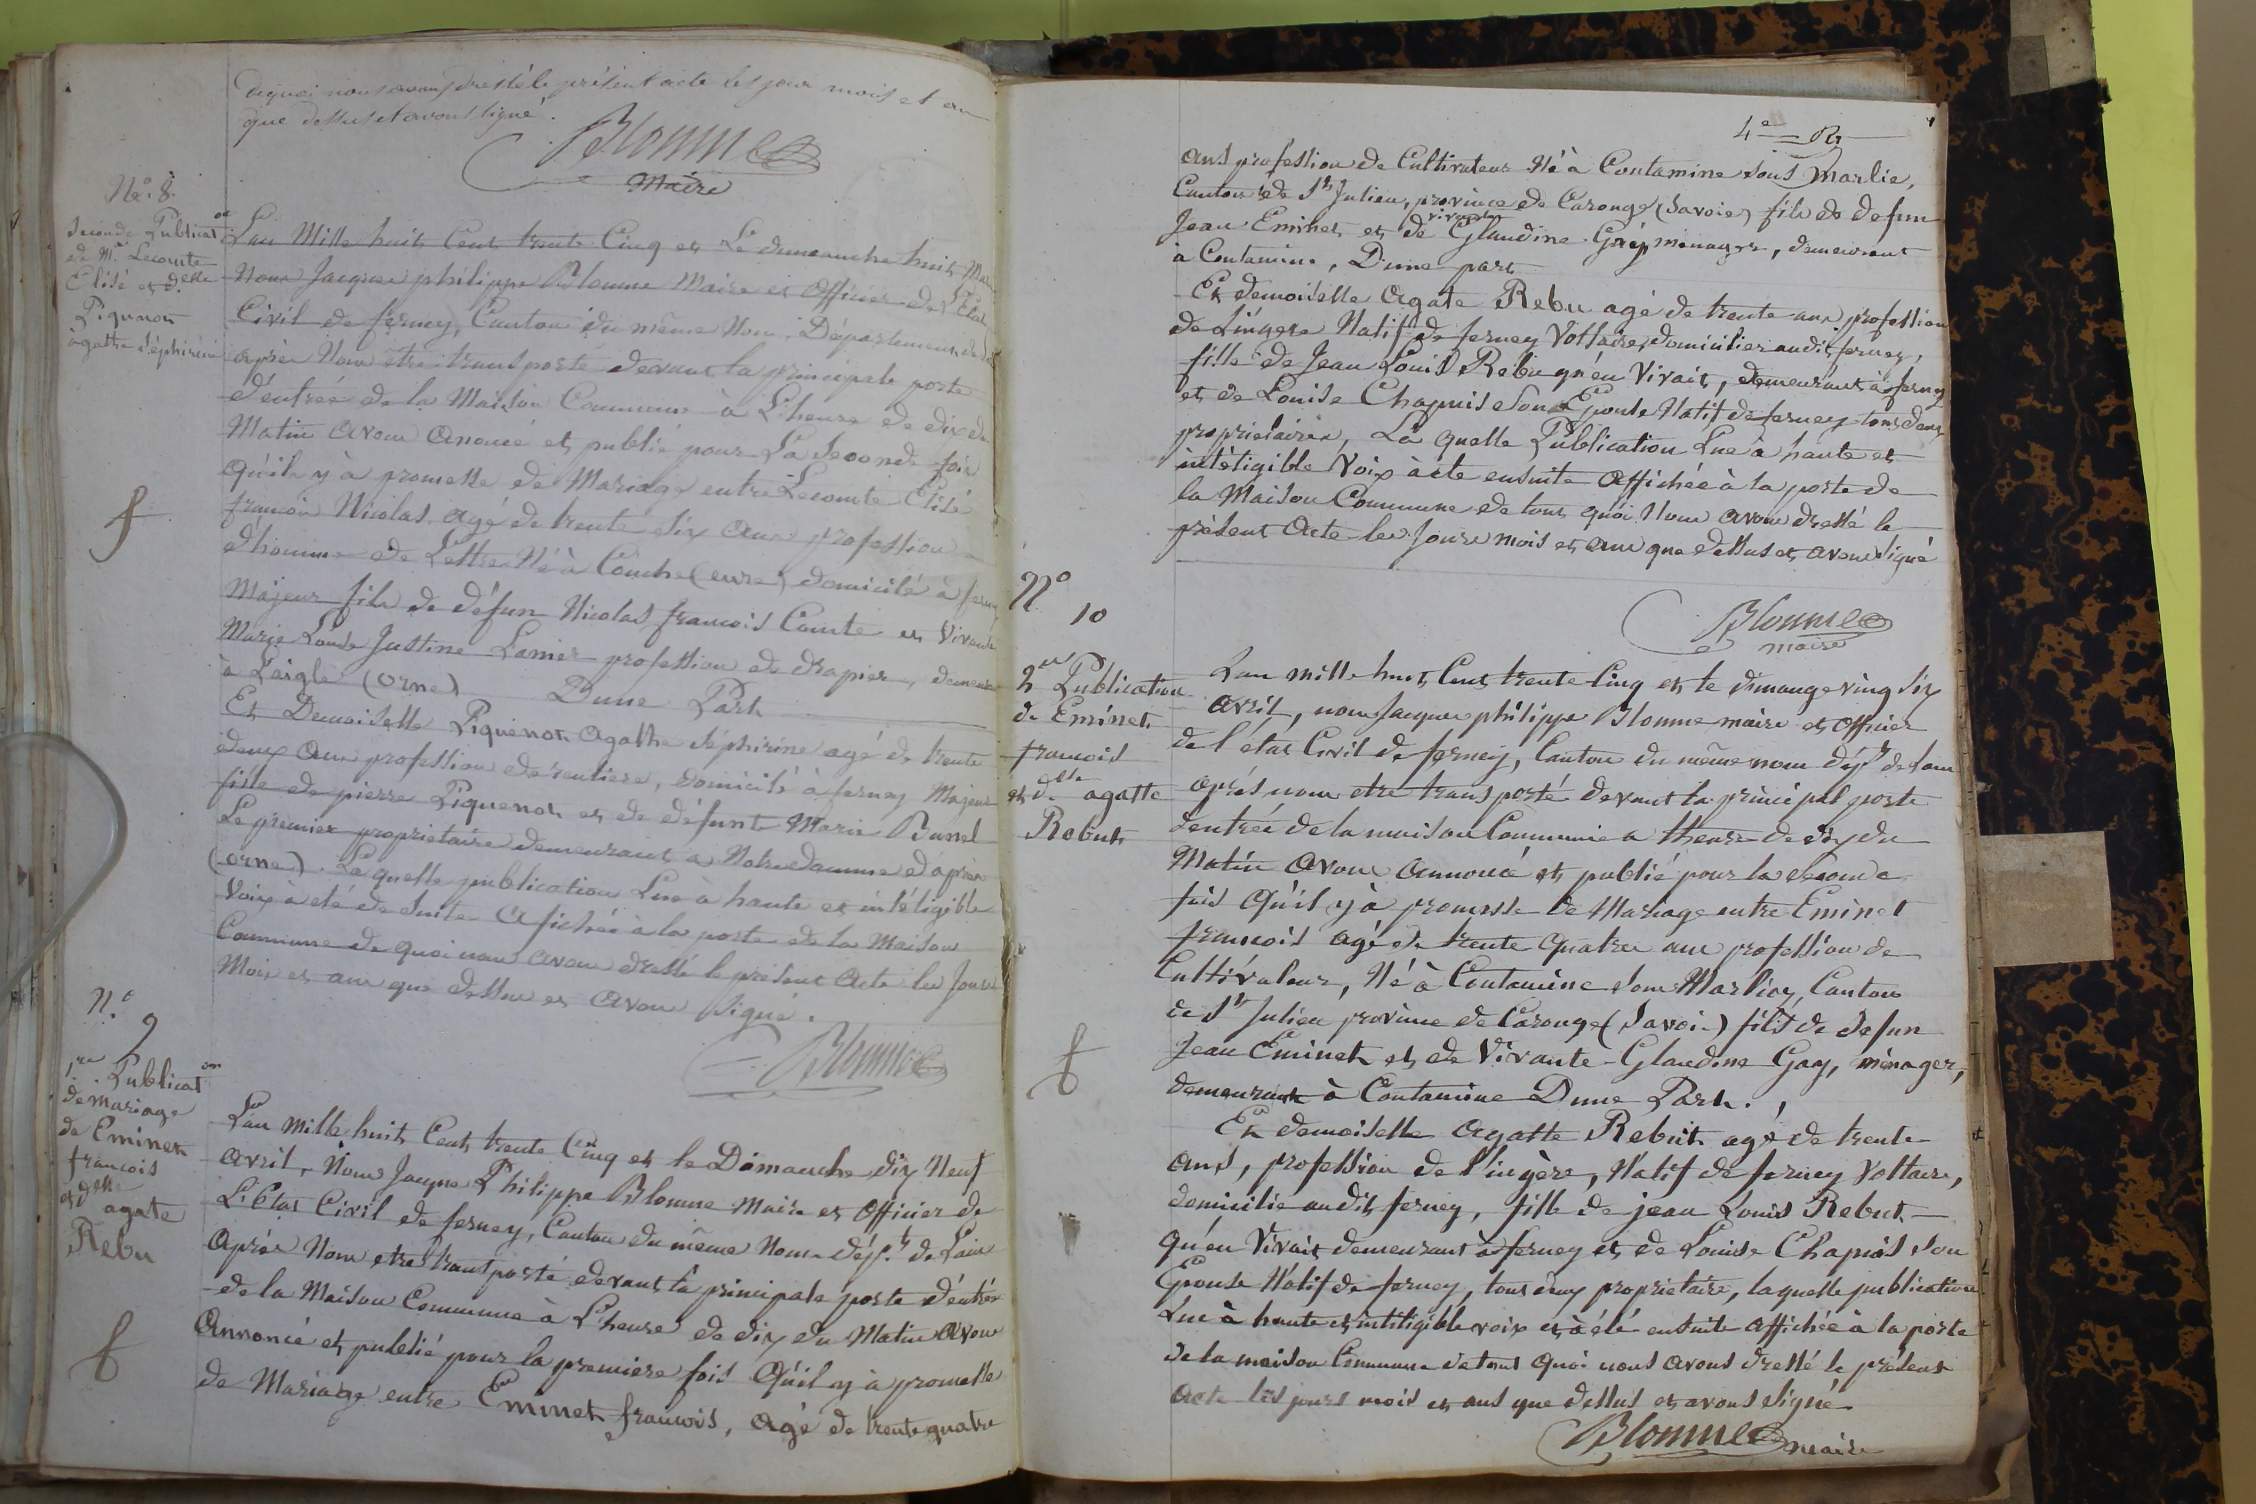 Dequoi nous avons dressé le présent acte les jour mois et an
que dessus et avons signé.
Blonme
Maire
No. 8.
Seconde Publicat.on
de Mr. Lecomte
Elisé et delle
Piquenot
agathe séphirine
L'an Mille huit Cent trente Cinq et Le dimanche huit Mars
Nous Jacques philippe Blonme Maire et Officier de L'Etat
Civil de ferney, Canton du même Nom, Département de
après Nous être transporté devant la principale porte
d'entrée de la Maison Commune à L'heure de dix du
Matin avons anoncé et publié pour La Seconde fois
qu'il y à promesse de Mariage entre Lecomte Elisé
francois Nicolas agé de trente six ans profession
d'homme de Lettre Né à Conche (eure) domicilé à ferney
Majeur fils de défun Nicolas francois Comte et Vivante
Marie Louise Justine Lanier profession de drapier, demeurant
à Laigle (orne) D'une Part
Et Demoiselle Piquenot Agathe séphirine agé de trente
deux ans profession de rentiere, domicilé à ferney Majeur
fille de pierre Piquenot et de défunte Marie Bunel
Le premier propriétaire demeurant a Notredamme d'aprés
(orne). Laquelle publication Lue à haute et intéligible
Voix à été de suite afichée à la porte de la Maison
Commune de quoi nous avons dressé le présent Acte les Jours
Mois et ans que dessus et avons signé.
Blonme
N.o 9
1.re Publicat.on
de mariage
de Eminet
francois
et delle
agate
Rebu
L'an mille huit Cent trente Cinq et le Dimanche dix Neuf
avril, Nous Jacque Philippe Blonme Maire et Officier de
L'Etat Civil de ferney, Canton du même Nom dépt. de L'ain
Après Nous etre transporté devant la principale porte d'entrée
de la Maison Commune à L'heure de dix du Matin Avons
Annoncé et publié pour la premiere fois Qu'il y à promesse
de Mariage entre Eminet francois, agé de trente quatre
4e
ans profession de Cultivateur Né à Contamine sous Marlie,
Canton de St Julien, province de Carouge (Savoie) fils de defun
vivante
Jean Eminet et de Glaudine Gay ménager, demeurant
à Contamine, D'une part
Et demoiselle Agate Rebu agé de trente ans profession
de Lingere Natif de ferney Voltaire, domicilier audit ferney,
fille de Jean Louis Rebu qu'en Vivait, demeurant à ferney
et de Louise Chapuis Son Epouse Natif de ferney tous deux
proprietaires, La quelle Publication Lue à haute et
intéligible Voix à été ensuite Affichée à la porte de
la Maison Commune de tout quoi Nous avons dressé le
présent Acte les Jours mois et ans que dessus et avons signé
Blonme
maire
No
10
2eme Publication
de Eminet
francois
et delle agatte
Rebut
L'an mille huit Cent trente Cinq et le dimange ving six
avril, nous Jacque philippe Blonme maire et Officier
de l'état Civil de ferney, Canton du même nom dépt de l'ain
aprés nous etre transporté devant la principal porte
d'entrée de la maison Commune a lheure de dix du
Matin avons annoncé et publié pour la seconde
fois Qu'il y à promesse de Mariage entre Eminet
francois agé de trente quatre ans profession de
Cultivateur, Né à Contamine sous Marlioz, Canton
de St Julien province de Carouge (Savoie) fils de defun
Jean Eminet et de Vivante Glaudine Gay, ménager,
demeurant à Contamine D'une Part.
Et demoiselle Agatte Rebut agé de trente
ans, profession de l'ingère, Natif de ferney Voltaire,
domicilié audit ferney, fille de jean Louis Rebut
qu'en Vivait demeurant à ferney et de Louise Chapuis son
Epouse Natif de ferney, tous deux propriétaire, laquelle publication
Lue à haute et intéligible voix et à été ensuite affichée à la porte
de la maison Commune de tout quoi nous avons dressé le présent
acte les jours mois et ans que dessus et avons signé
Blonme maire